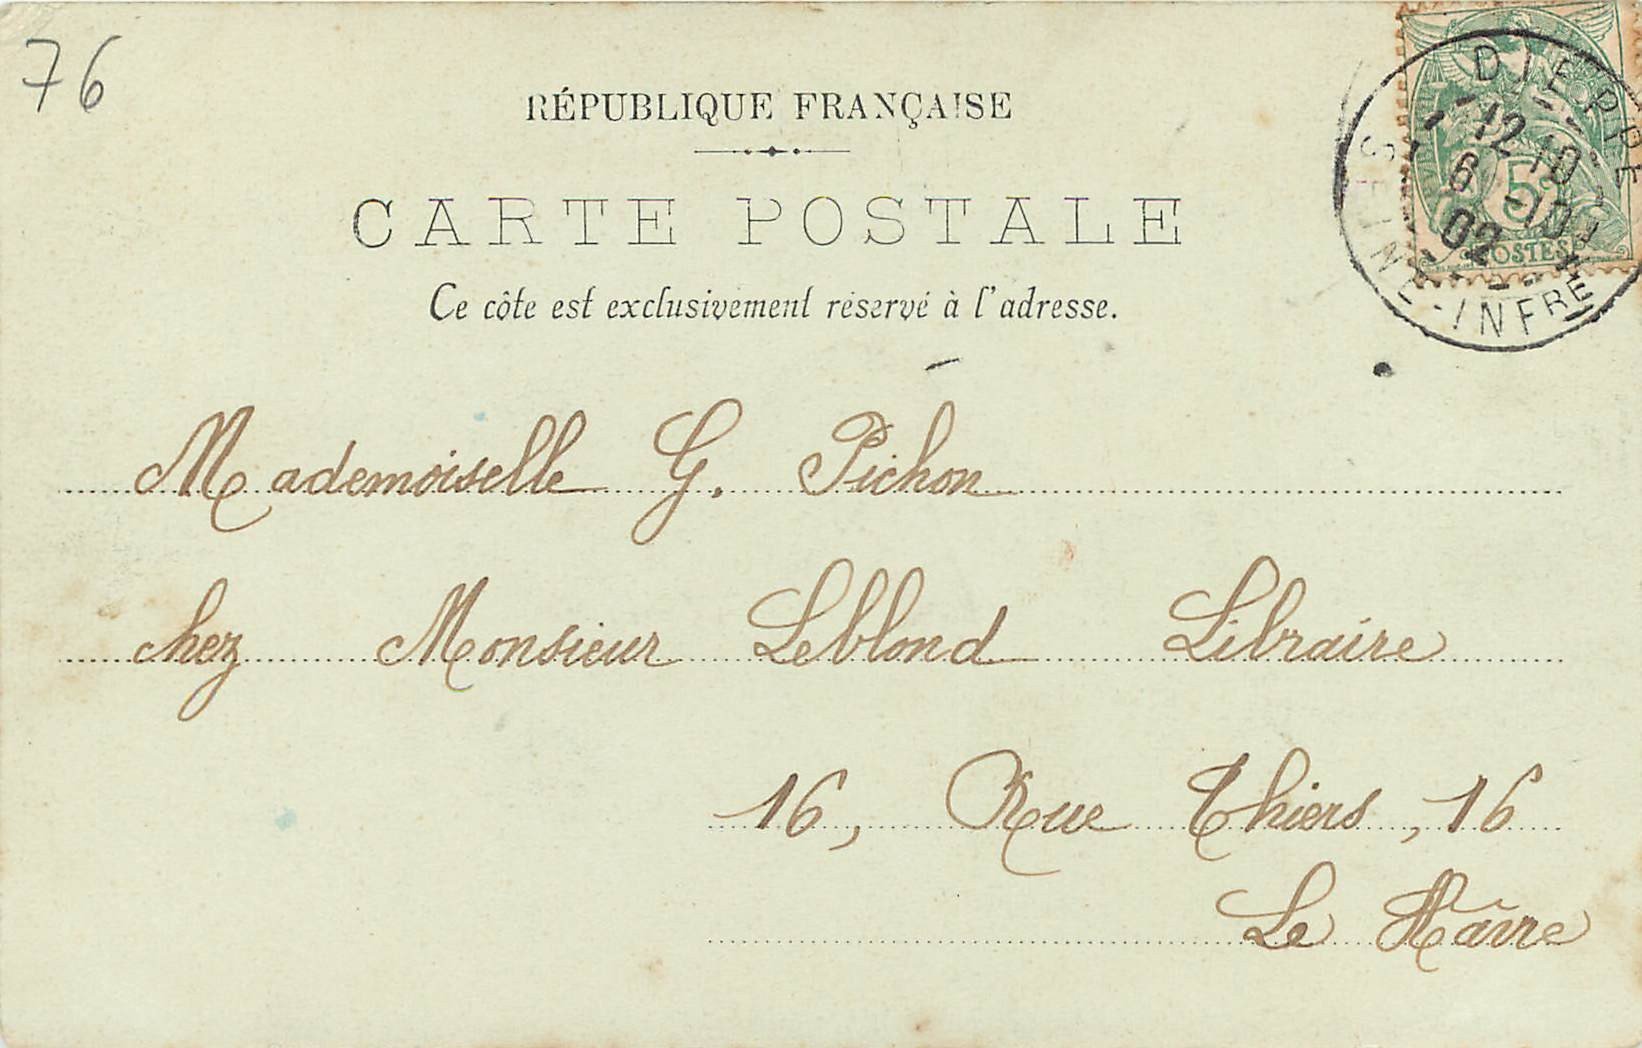 76
RÉPUBLIQUE FRANÇAISE
CARTE POSTALE
Ce côte est exclusivement réservé à l'adresse.
DIEPPE
12 10
6 -10
02
SEINE-INFRE
5c
POSTES
Mademoiselle G. Pichon
chez Monsieur Leblond Libraire
16, Rue Thiers, 16
Le Hâvre